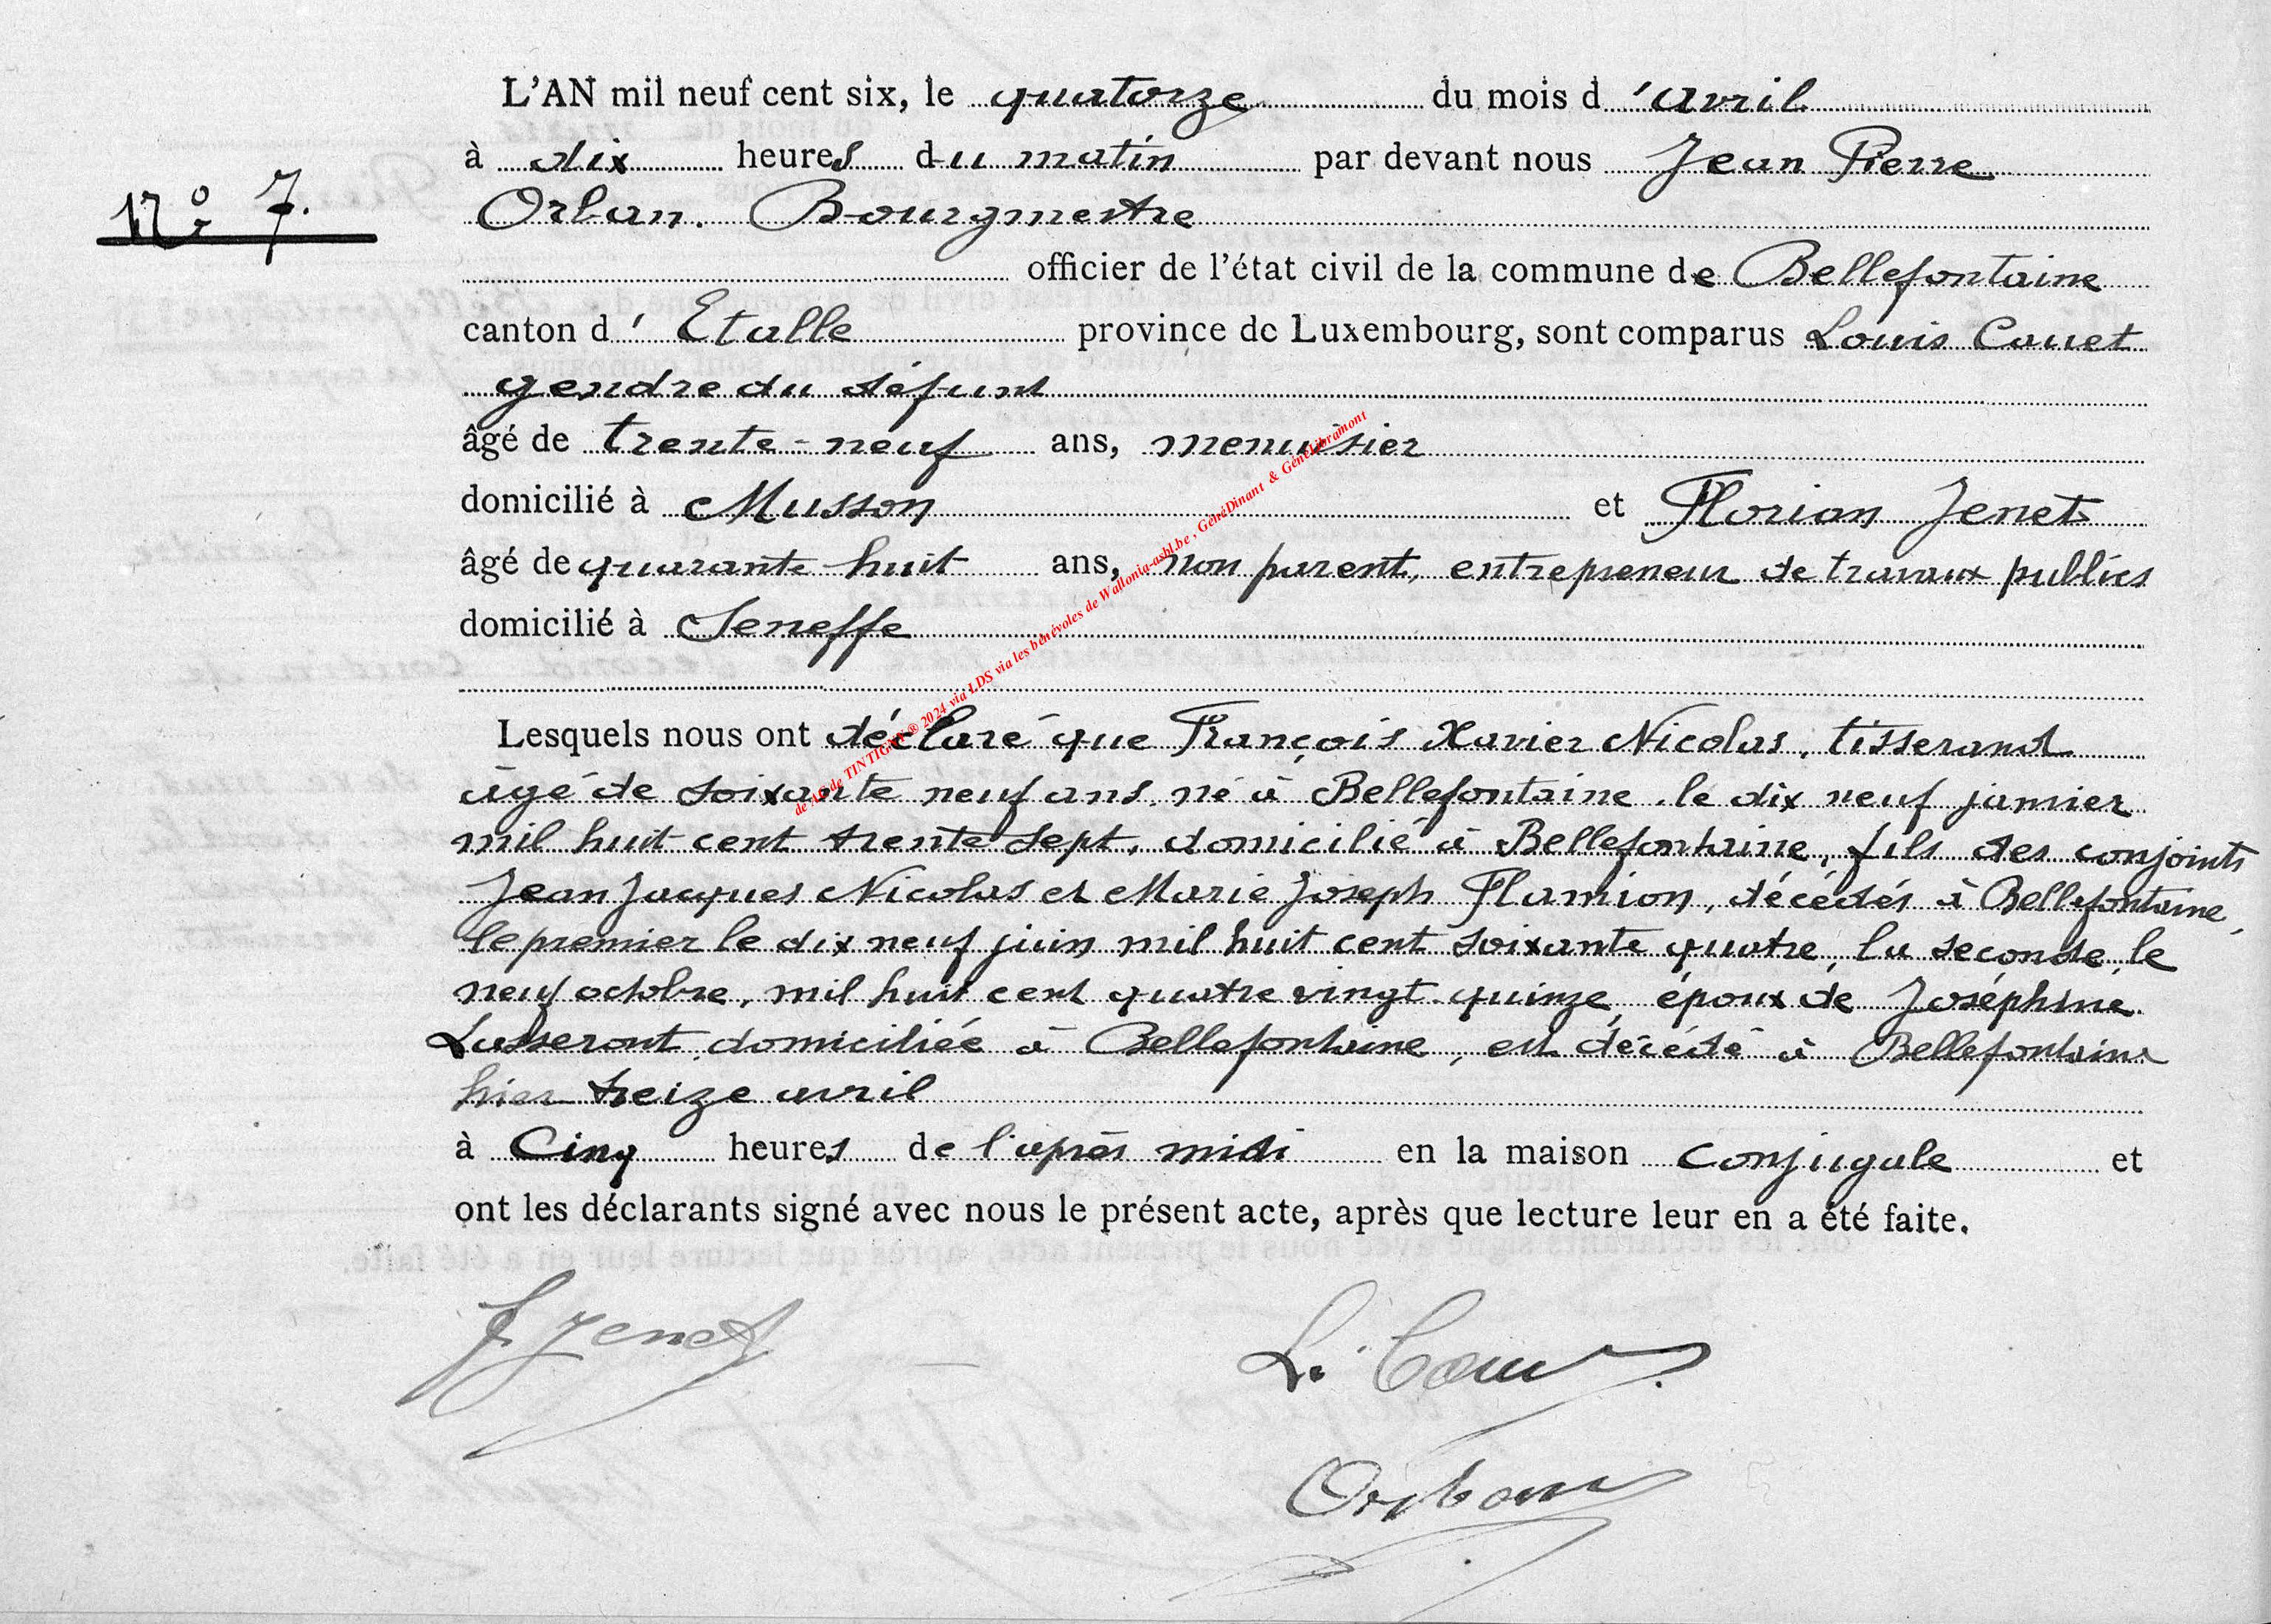 L'AN mil neuf cent six, le quatorze du mois d'avril
à dix heures du matin par devant nous Jean Pierre
N° 7.
Orban. Bourgmestre
officier de l'état civil de la commune de Bellefontaine
canton d' Etalle province de Luxembourg, sont comparus Louis Cauet
gendre du défunt
âgé de trente-neuf ans, menuisier
domicilié à Musson et Florian Jenet
âgé de quarante huit ans, non parent, entrepreneur de travaux publics
domicilié à Seneffe
de AC de TINTIGNY ® 2024 via LDS via les bénévoles de Wallonia-asbl.be , GénéDinant & GénéLibramont
Lesquels nous ont déclaré que François Xavier Nicolas, tisserand
âgé de soixante neuf ans, né à Bellefontaine le dix neuf janvier
mil huit cent trente sept, domicilié à Bellefontaine, fils des conjoints
Jean Jacques Nicolas et Marie Joseph Flamion, décédés à Bellefontaine,
le premier le dix neuf juin mil huit cent soixante quatre, la seconde, le
neuf octobre, mil huit cent quatre vingt quinze, époux de Joséphine
Lasseront, domiciliée à Bellefontaine, est décédé à Bellefontaine
hier treize avril
à Cinq heures de l'après midi en la maison conjugale et
ont les déclarants signé avec nous le présent acte, après que lecture leur en a été faite.
F. Jenet
L. Cauet
Orban